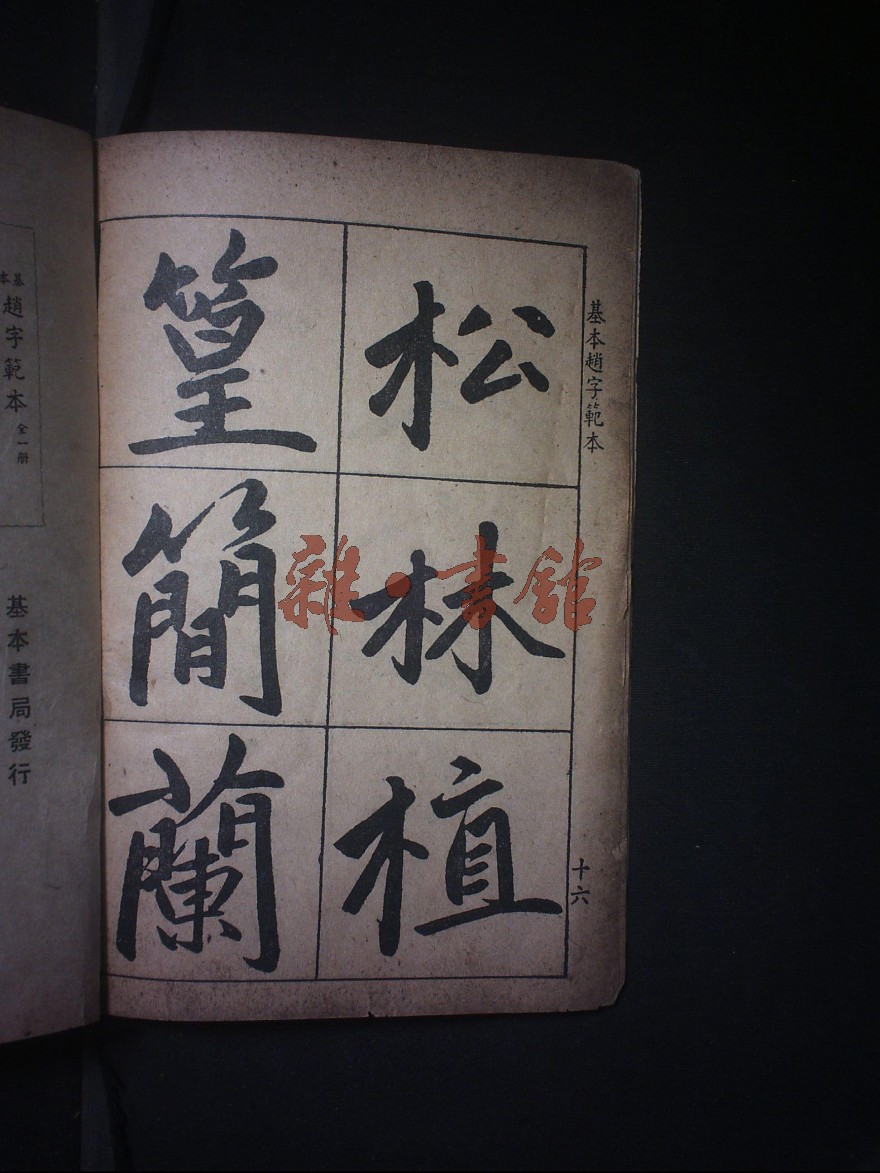 基本趙字範本
十六
松
植
篁
簡
蘭
雜·書館
基本
趙字範本
全一册
基本書局發行